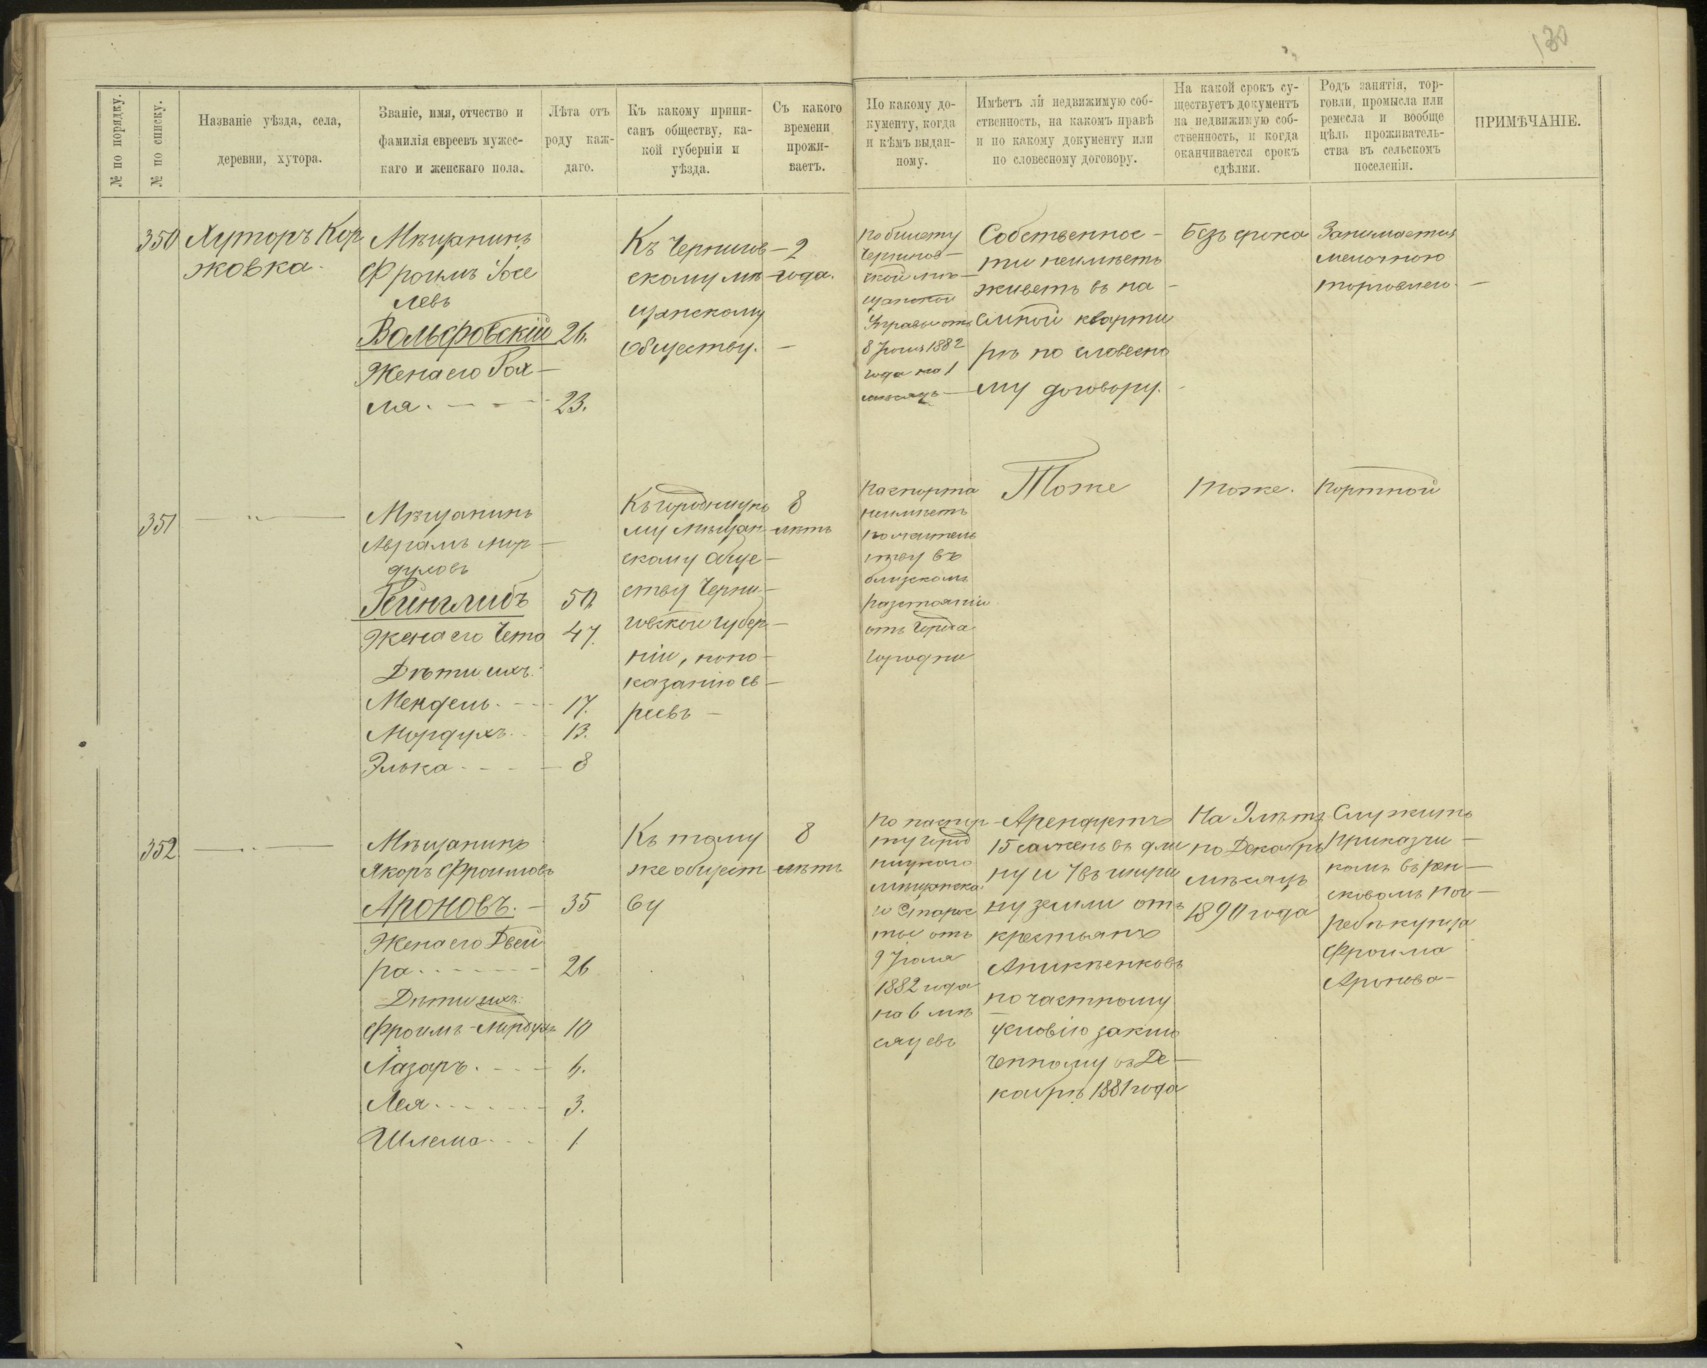 130
№ по порядку.
№ по списку.
Названіе уѣзда, села,
деревни, хутора.
Званіе, имя, отчество и
фамилія евреевъ мужес-
каго и женскаго пола.
Лѣта отъ
роду каж-
даго.
Къ какому припи-
санъ обществу, ка-
кой губерніи и
уѣзда.
Съ какого
времени
прожи-
ваетъ.
По какому до-
кументу, когда
и кѣмъ выдан-
ному.
Имѣетъ ли недвижимую соб-
ственность, на какомъ правѣ
и по какому документу или
по словесному договору.
На какой срокъ су-
ществуетъ документъ
на недвижимую соб-
ственность, и когда
оканчивается срокъ
сдѣлки.
Родъ занятія, тор-
говли, промысла или
ремесла и вообще
цѣль проживатель-
ства въ сельскомъ
поселеніи.
ПРИМѢЧАНІЕ.
350
Хуторъ Кор
жовка.
Мѣщанинъ
Фроимъ Іосе
левъ
Вольфовскій 26.
Жена его Рох-
ля. 23.
Къ Чернигов-
скому мѣ-
щанскому
обществу.
2
года.
по билету
Чернигов-
ской мѣ-
щанской
Управы отъ
8 Іюля 1882
года на 1
мѣсяцъ
Собственнос-
ти неимѣетъ
живетъ въ на-
емной кварти
рѣ по словесно
му договору.
Безъ срока
Занимается
мелочною
торговлею.
351
Мѣщанинъ
Аврамъ Мор-
духовъ
Рейнглибъ 50
Жена его Чета 47.
Дѣти ихъ:
Мендель 17.
Мордухъ 13.
Элька 8
Къ Городницко
му мѣщан-
скому обще-
ству Черни-
говской губер-
ніи, по по-
казанію ев-
реевъ
8
лѣтъ
Паспорта
неимѣетъ
по житель
ству въ
близкомъ
разстояніи
отъ города
Городни
Тоже
тоже.
Портной
352
Мѣщанинъ
Якоръ Фроимовъ
Ароновъ. 35
Жена его Двей
ра 26
Дѣти ихъ:
Фроимъ-Мордухъ 10
Лазоръ. 4.
Лея 3.
Шлема 1
Къ тому
же общест
ву
8
лѣтъ
По паспор
ту Город
ницкаго
мѣщанска
го Старос
ты отъ
9 Іюля
1882 года
на 6 мѣ
сяцевъ
Арендуетъ
15 сажень въ дли
ну и 7 въ шири
ну земли отъ
крестьянъ
Аникѣенковъ
по частному
условію заклю
ченному въ Де-
кабрѣ 1881 года
На 9 лѣтъ
по Декабрь
мѣсяцъ
1890 года
Служитъ
приказчи-
комъ въ рен-
сковомъ пог-
ребѣ купца
Фроима
Аронова